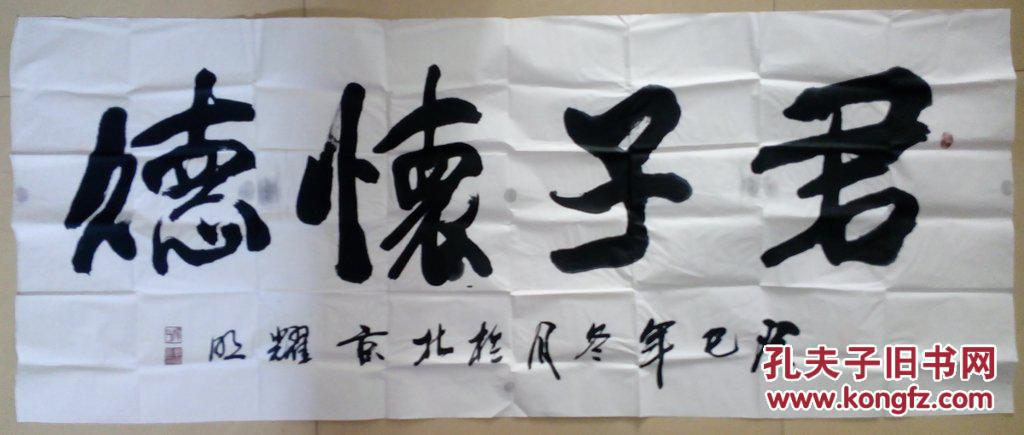 君子懷德
癸巳年冬月於北京耀明
孔夫子旧书网
www.kongfz.com